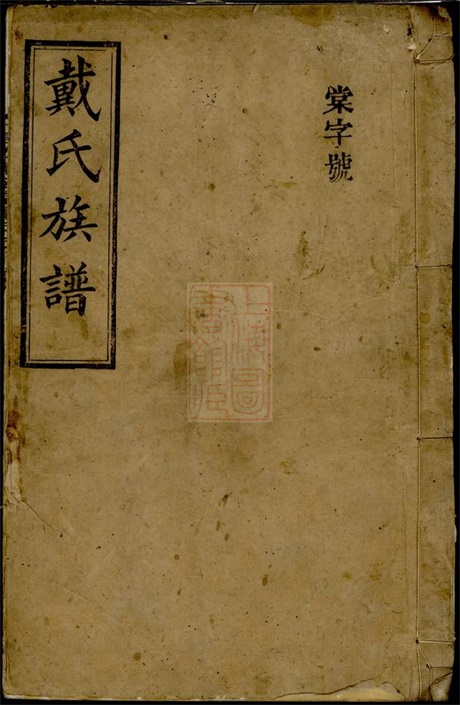 棠字號
戴氏族譜
上海圖書館藏